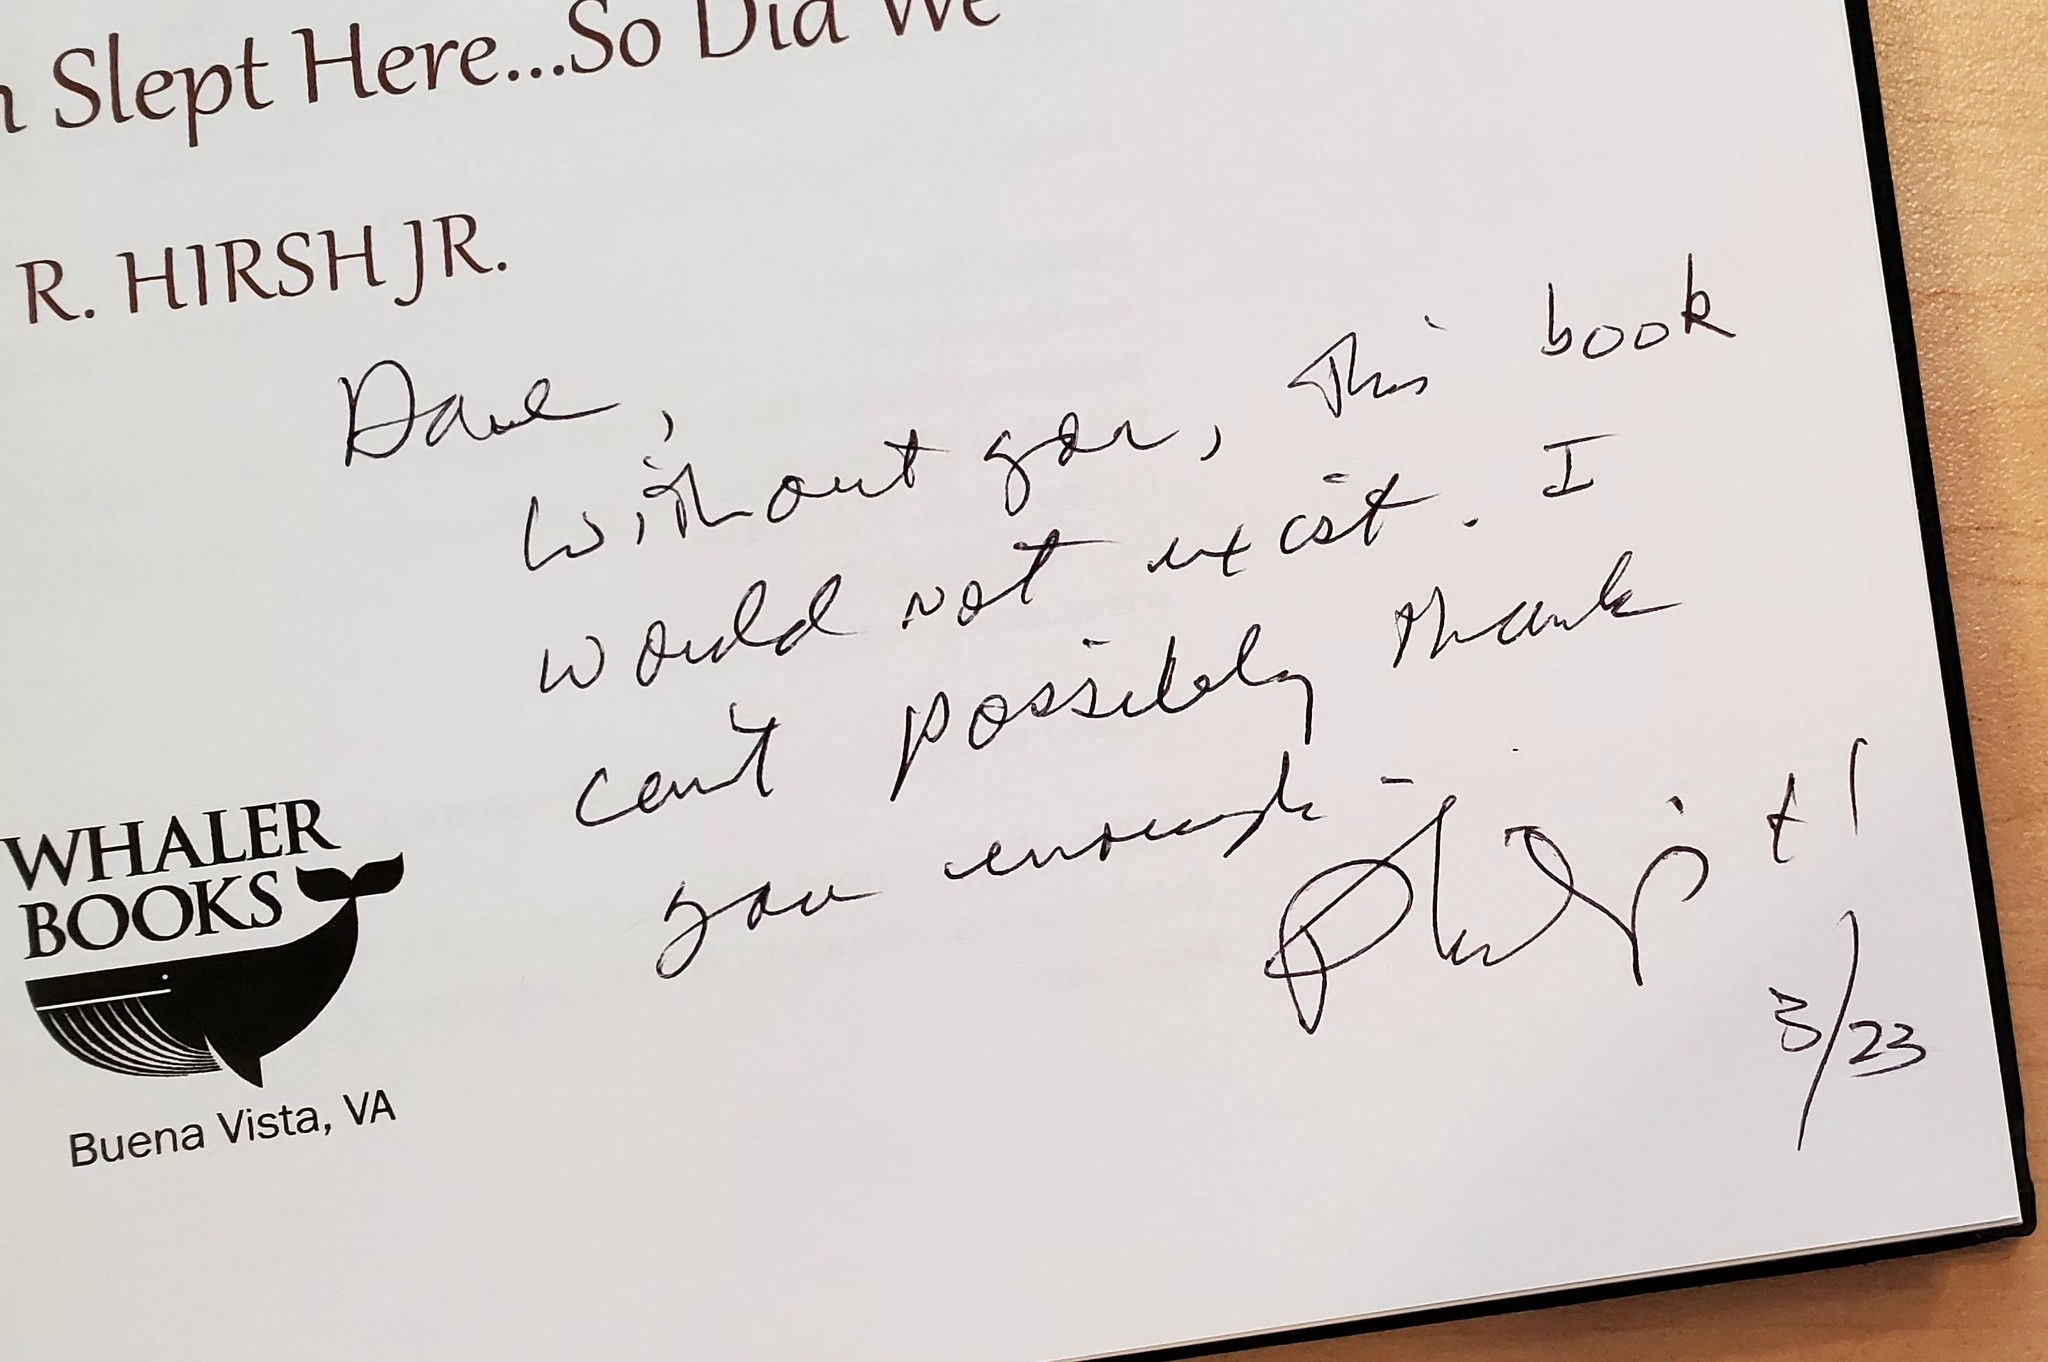 n Slept Here...So Did We
R. HIRSH JR.
Dave,
Without you, this book
would not exist. I
can't possibly thank
you enough
3/23
WHALER
BOOKS
Buena Vista, VA